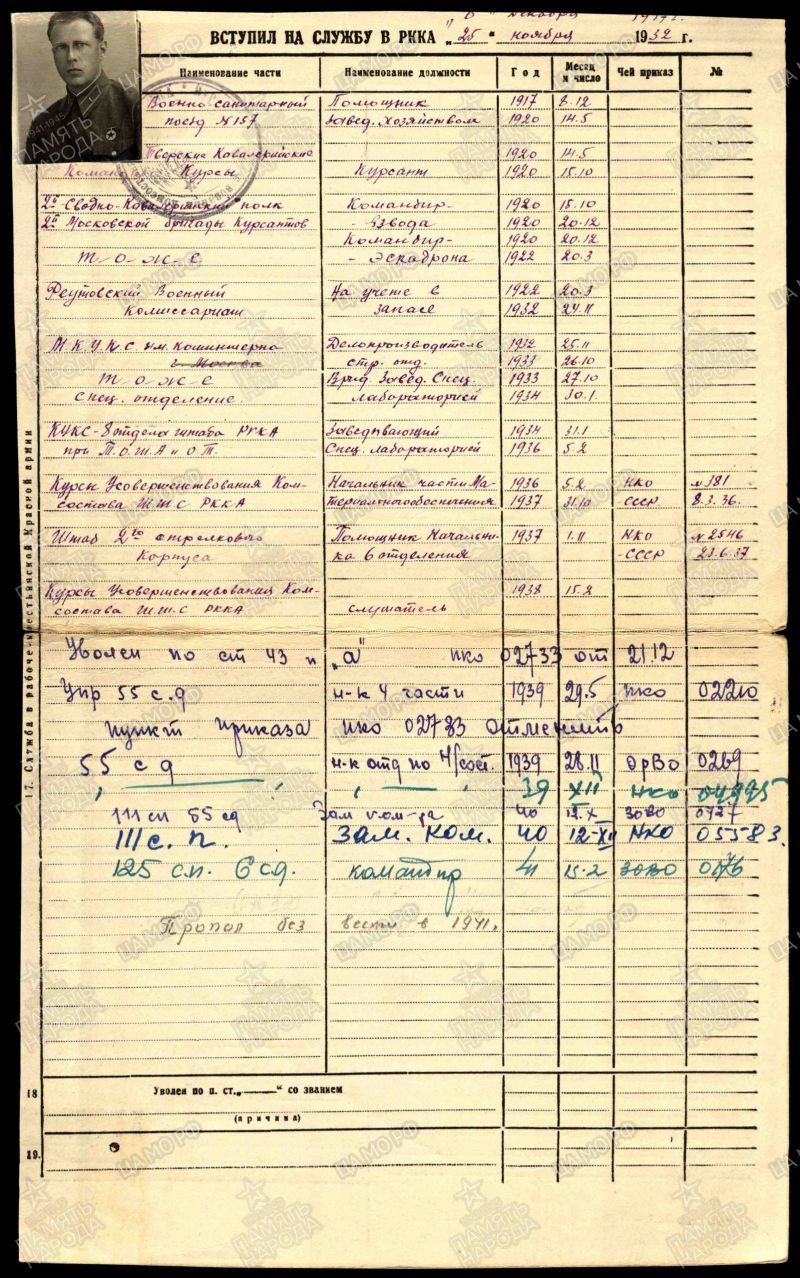 "8" декабря 1917 г.
ВСТУПИЛ НА СЛУЖБУ В РККА "25" ноября 1932 г.
Наименование части Наименование должности Год Месяц и число Чей приказ №
Военно санитарный Помощник 1917 8.12
поезд №157 завед. хозяйством 1920 14.5
Тверские Кавалерийские 1920 14.5
Курсы Курсант 1920 15.10
2й Сводно-Кавалерийский полк Командир- 1920 15.10
2й Московской бригады Курсантов -взвода 1920 20.12
Командир- 1920 20.12
Т-о-ж-е -эскадрона 1922 20.3
Реутовский Военный На учете в 1922 20.3
Комиссариат запасе 1932 24.11
М.К.У.К.С им. Коминтерна Делопроизводитель 1932 25.11
г. Москва стр. отд. 1933 26.10
Т-о-ж-е Врид. Завед. Спец. 1933 27.10
Спец. отделение лабораторией 1934 30.1
КУКС-8 отдела штаба РККА Заведывающий 1934 31.1
при Т.О.Ш.А и О.Т. Спец. лабораторией 1936 5.2
Курсы Усовершенствования Ком- Начальник части Ма- 1936 5.2 НКО №381
состава Ш.Ш.С РККА териального обеспечения 1937 31.10 СССР 8.3.36.
Штаб 2го стрелкового Помощник Начальни- 1937 1.11 НКО №2546
Корпуса ка 6 отделения -СССР 23.6.37
Курсы Усовершенствования Ком- 1938 15.2
состава Ш.Ш.С РККА слушатель
Уволен по ст 43 п "а" нко 02733 от 21.12
Упр 55 с.д н-к 4 части 1939 29.5 нко 02210
пункт приказа нко 02783 отменить
55 с д н-к отд по ч/сост. 1939 28.11 ОрВо 0269
" " " " 39 XII НКО 04995
111 сп 55 сд Зам ком-ра 40 12.X ЗОВО 0727
111 с. п. Зам. Ком. 40 12-XII НКО 05583.
125 сп. 6 сд. командир 41 15.2 ЗОВО 0176
Пропал без вести в 1941.
17. Служба в рабоче-крестьянской Красной армии
18 Уволен по п. ст. „ “ со званием
(причина)
19.
1941-1945
ПАМЯТЬ НАРОДА
ЦАМО РФ